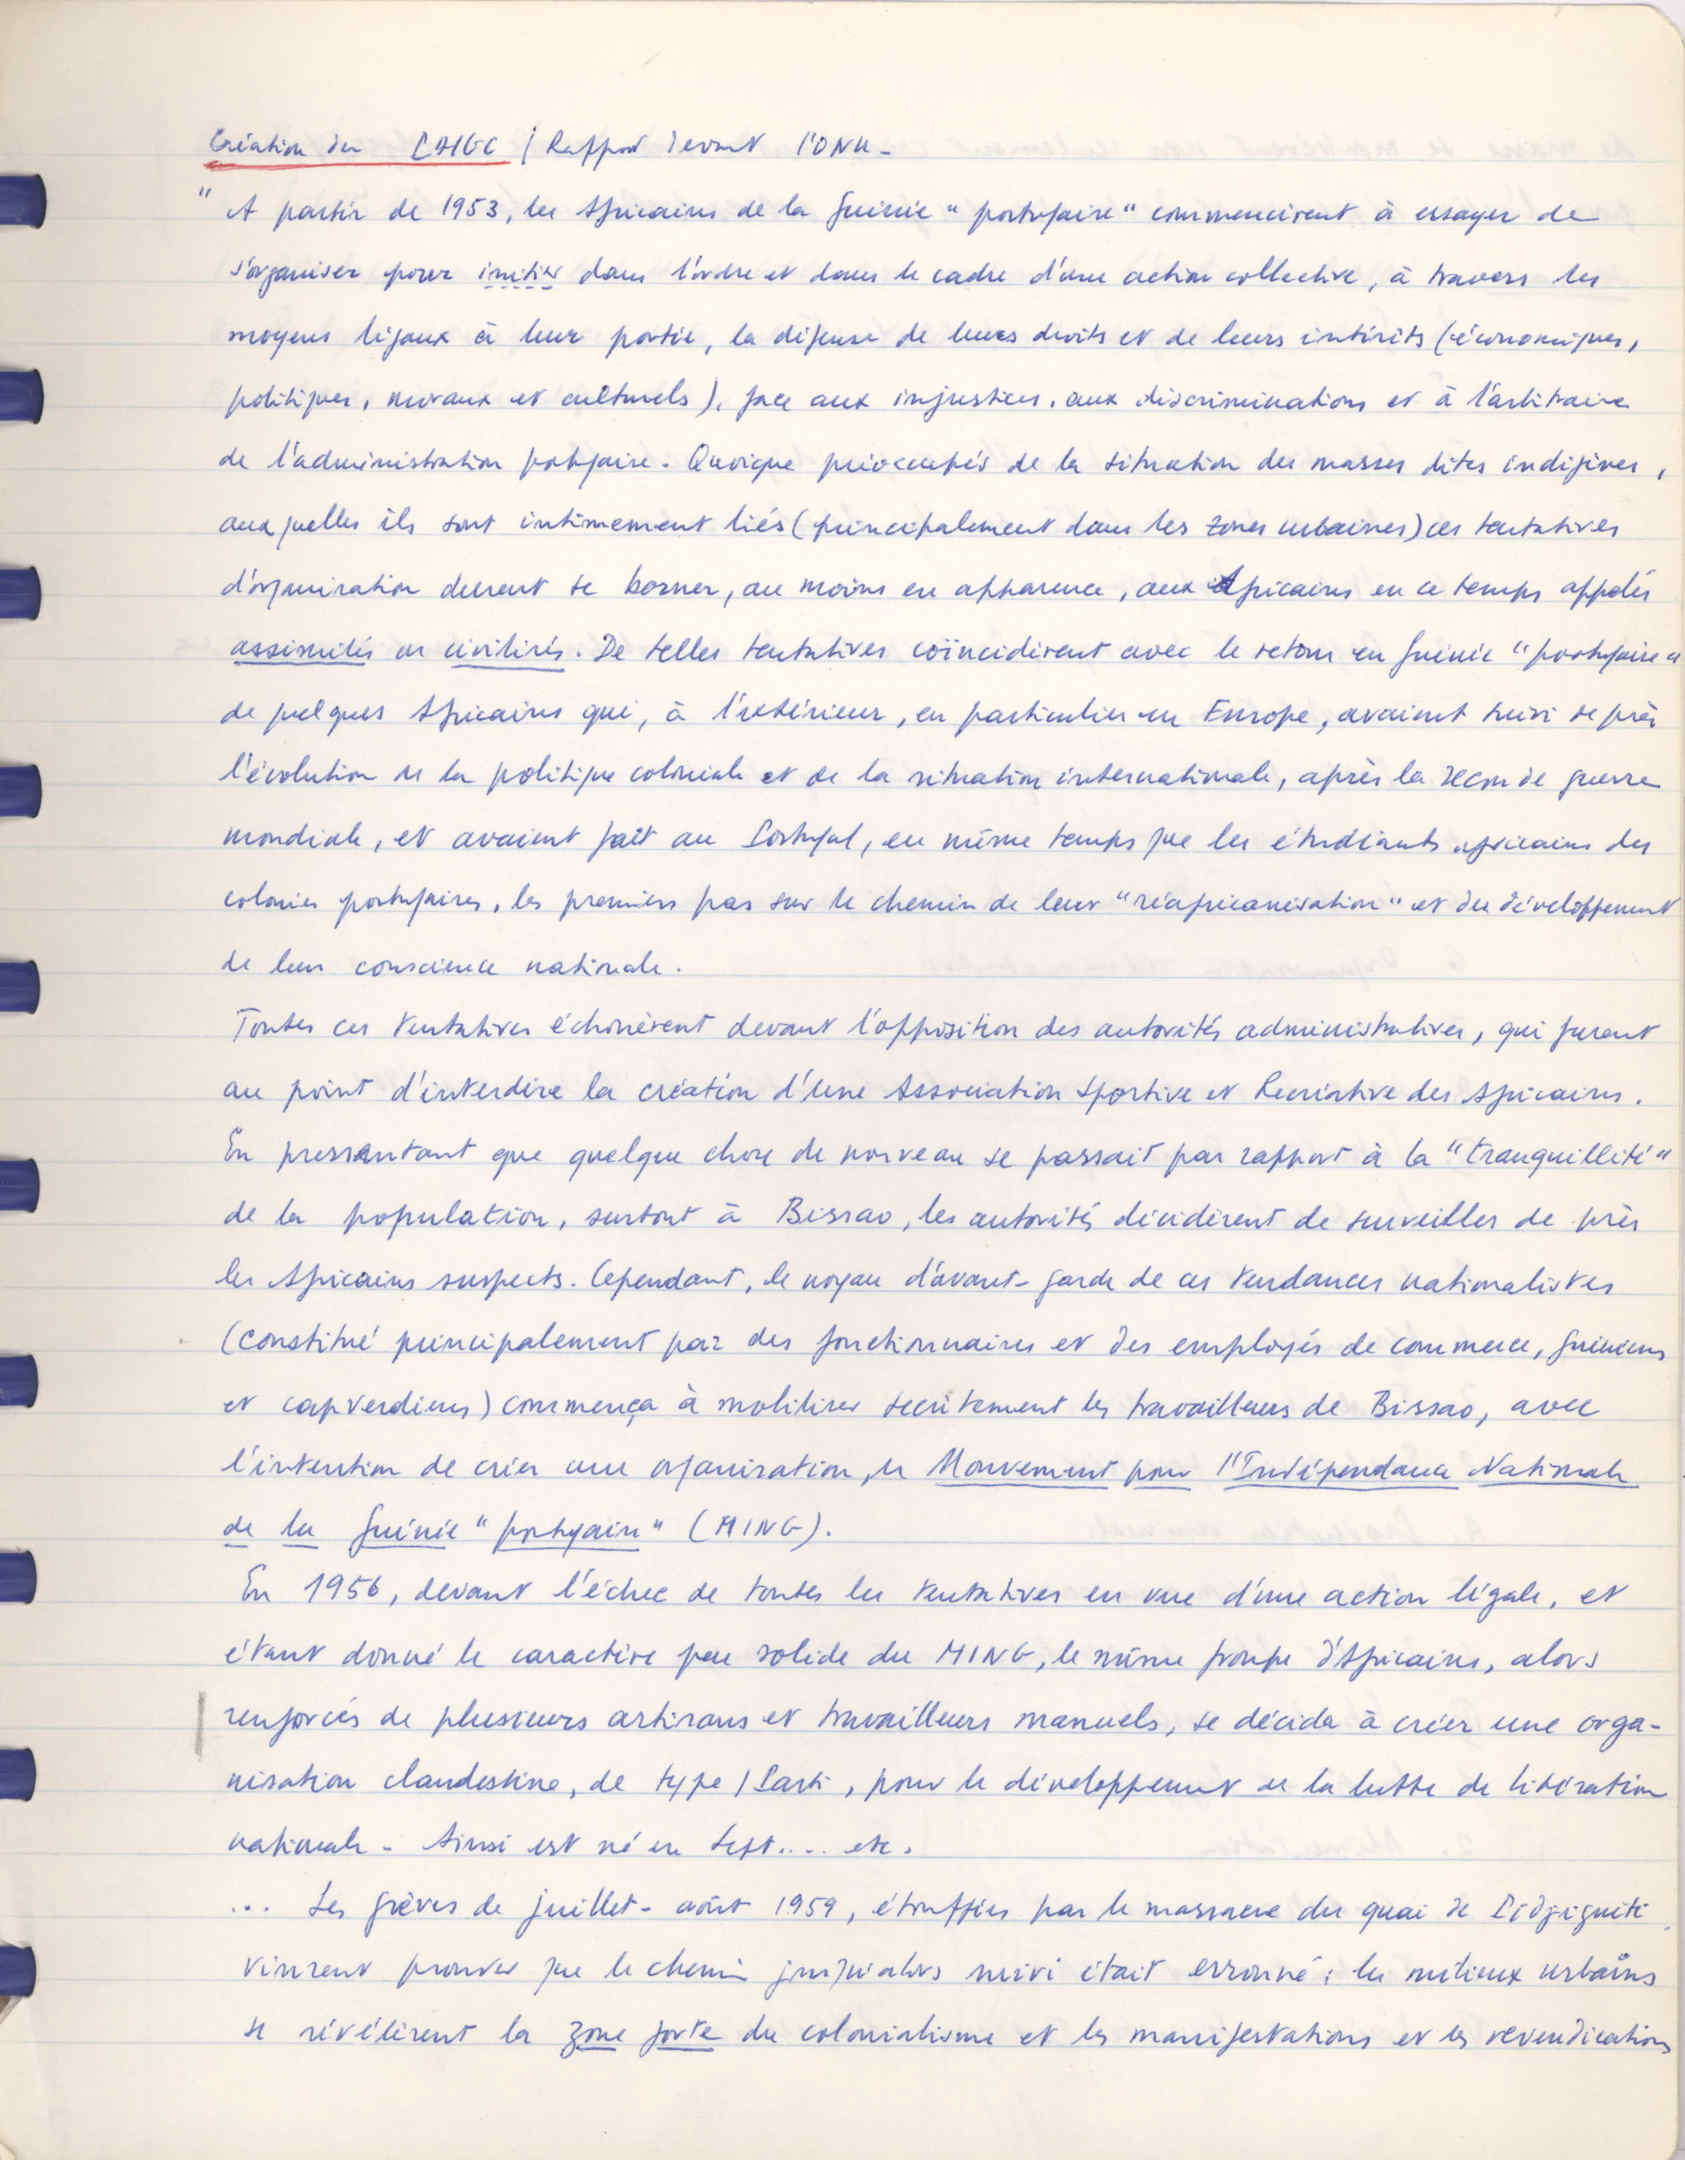 Création du PAIGC / Rapport devant l'ONU -
" A partir de 1953, les Africains de la Guinée " portugaise " commencèrent à essayer de
s'organiser pour initier dans l'ordre et dans le cadre d'une action collective, à travers les
moyens légaux à leur portée, la défense de leurs droits et de leurs intérêts (économiques,
politiques, moraux et culturels), face aux injustices, aux discriminations et à l'arbitraire
de l'administration portugaise. Quoique préoccupés de la situation des masses dites indigènes,
auxquelles ils sont intimement liés (principalement dans les zones urbaines) ces tentatives
d'organisation durent se borner, au moins en apparence, aux Africains en ce temps appelés
assimilés ou civilisés. De telles tentatives coïncidèrent avec le retour en Guinée " portugaise "
de quelques Africains qui, à l'extérieur, en particulier en Europe, avaient suivi de près
l'évolution de la politique coloniale et de la situation internationale, après la seconde guerre
mondiale, et avaient fait au Portugal, en même temps que les étudiants africains des
colonies portugaises, les premiers pas sur le chemin de leur "réafricanisation" et du développement
de leur conscience nationale.
Toutes ces tentatives échouèrent devant l'opposition des autorités administratives, qui furent
au point d'interdire la création d'une Association Sportive et Recréative des Africains.
En pressentant que quelque chose de nouveau se passait par rapport à la "tranquillité"
de la population, surtout à Bissao, les autorités décidèrent de surveiller de près
les Africains suspects. Cependant, le noyau d'avant-garde de ces tendances nationalistes
(constitué principalement par des fonctionnaires et des employés de commerce, guinéens
et capverdiens) commença à mobiliser secrètement les travailleurs de Bissao, avec
l'intention de créer une organisation, le Mouvement pour l'Indépendance Nationale
de la Guinée " portugaise " (MING).
En 1956, devant l'échec de toutes les tentatives en vue d'une action légale, et
étant donné le caractère peu solide du MING, le même groupe d'Africains, alors
renforcés de plusieurs artisans et travailleurs manuels, se décida à créer une orga-
nisation clandestine, de type / Parti, pour le développement de la lutte de libération
nationale - Ainsi est né en Sept.... etc.
... Les grèves de juillet - août 1959, étouffées par le massacre du quai de Pidjiguiti
vinrent prouver que le chemin jusqu'alors suivi était erronné : les milieux urbains
se révélèrent la zone forte du colonialisme et les manifestations et les revendications